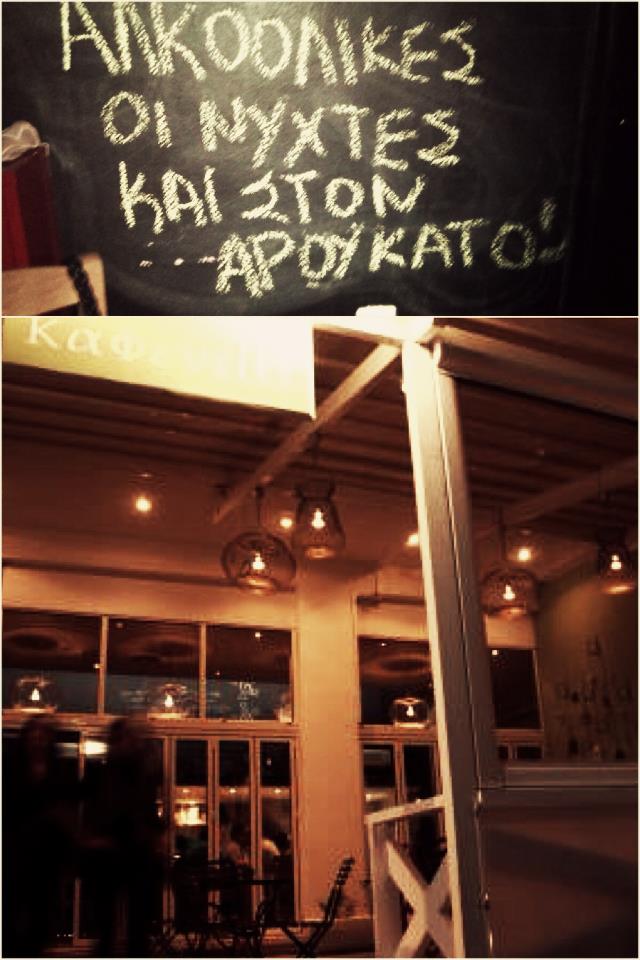 ΑΛΚΟΟΛΙΚΕΣ
ΟΙ ΝΥΧΤΕΣ
ΚΑΙ ΣΤΟΝ
...ΑΡΟΥΚΑΤΟ!